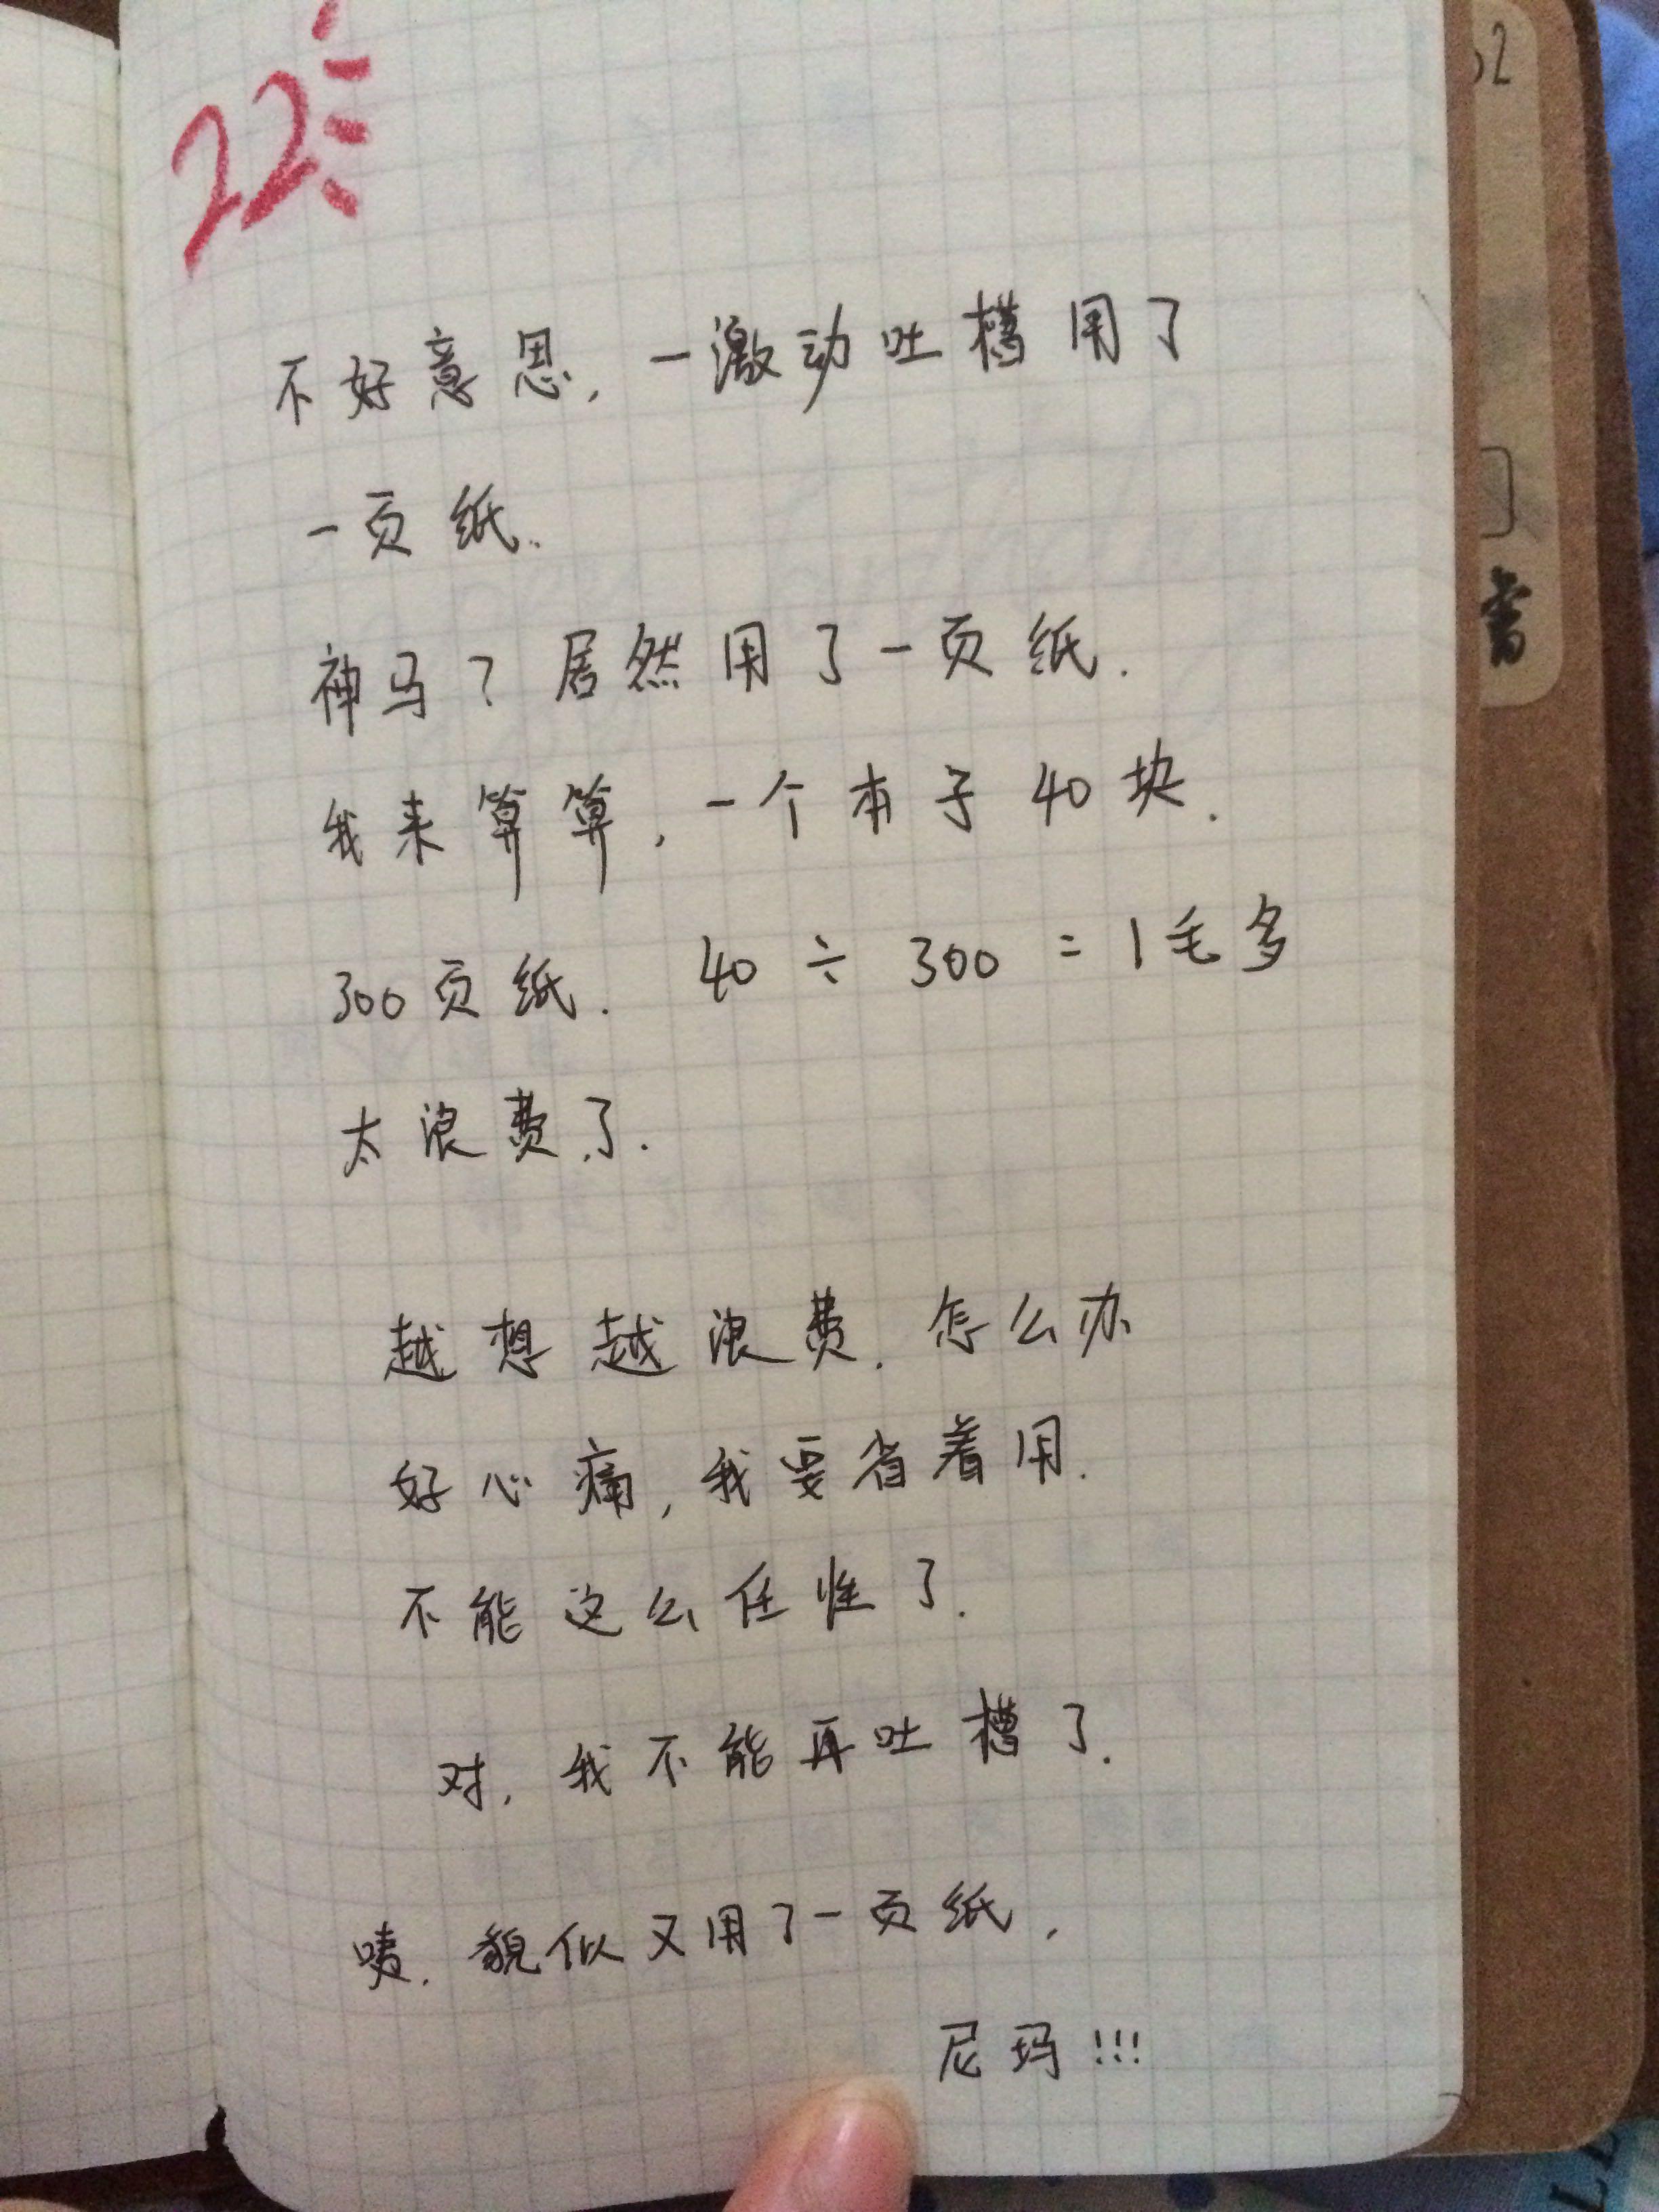 22
不好意思,一激动吐槽用了
一页纸.
神马?居然用了一页纸.
我来算算,一个本子40块.
300页纸. 40÷300=1毛多
太浪费了.
越想越浪费.怎么办
好心痛,我要省着用.
不能这么任性了.
对,我不能再吐槽了.
咦.貌似又用了一页纸,
尼玛!!!